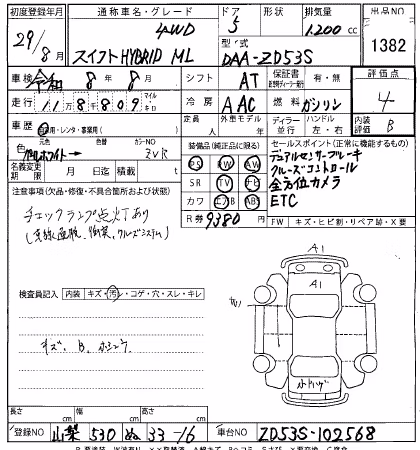 初度登録年月 通称車名・グレード ドア 形状 排気量 出品NO
29/8月 スイフトHYBRID ML 4WD 5 1200cc 1382
型・式 DAA-ZD53S
車検 令和 8年 8月 シフト AT 保証書 有・無 評価点
走行 118809 マイル キロ 冷房 AAC 燃料 ガソリン 4
車歴 自家用・レンタ・事業用( ) 定員 人 外車モデル 年 ディーラー 並行 ハンドル 左・右 内装 B
色 元色 ホワイト→ 色番 カラーNO ZVR
名義変更期限 月 日 車検 積載 t
装備品(純正品に限る) PS PW AW SR TV ナビ カワ エアB ABS
R券 9380円
セールスポイント(正常に機能するもの)
デュアルセンサーブレーキ
クルーズコントロール
全方位カメラ
ETC
注意事項(欠品・修復・不具合箇所および状態)
チェックランプ点灯あり
FW キズ・ヒビ割・リペア跡・X要
検査員記入 内装 キズ・汚・コゲ・穴・スレ・キレ
キズ、B、
A1
A1
長さ cm 幅 cm 高さ cm
登録NO 山梨 530 ぬ 33-16 車台NO ZD53S-102568